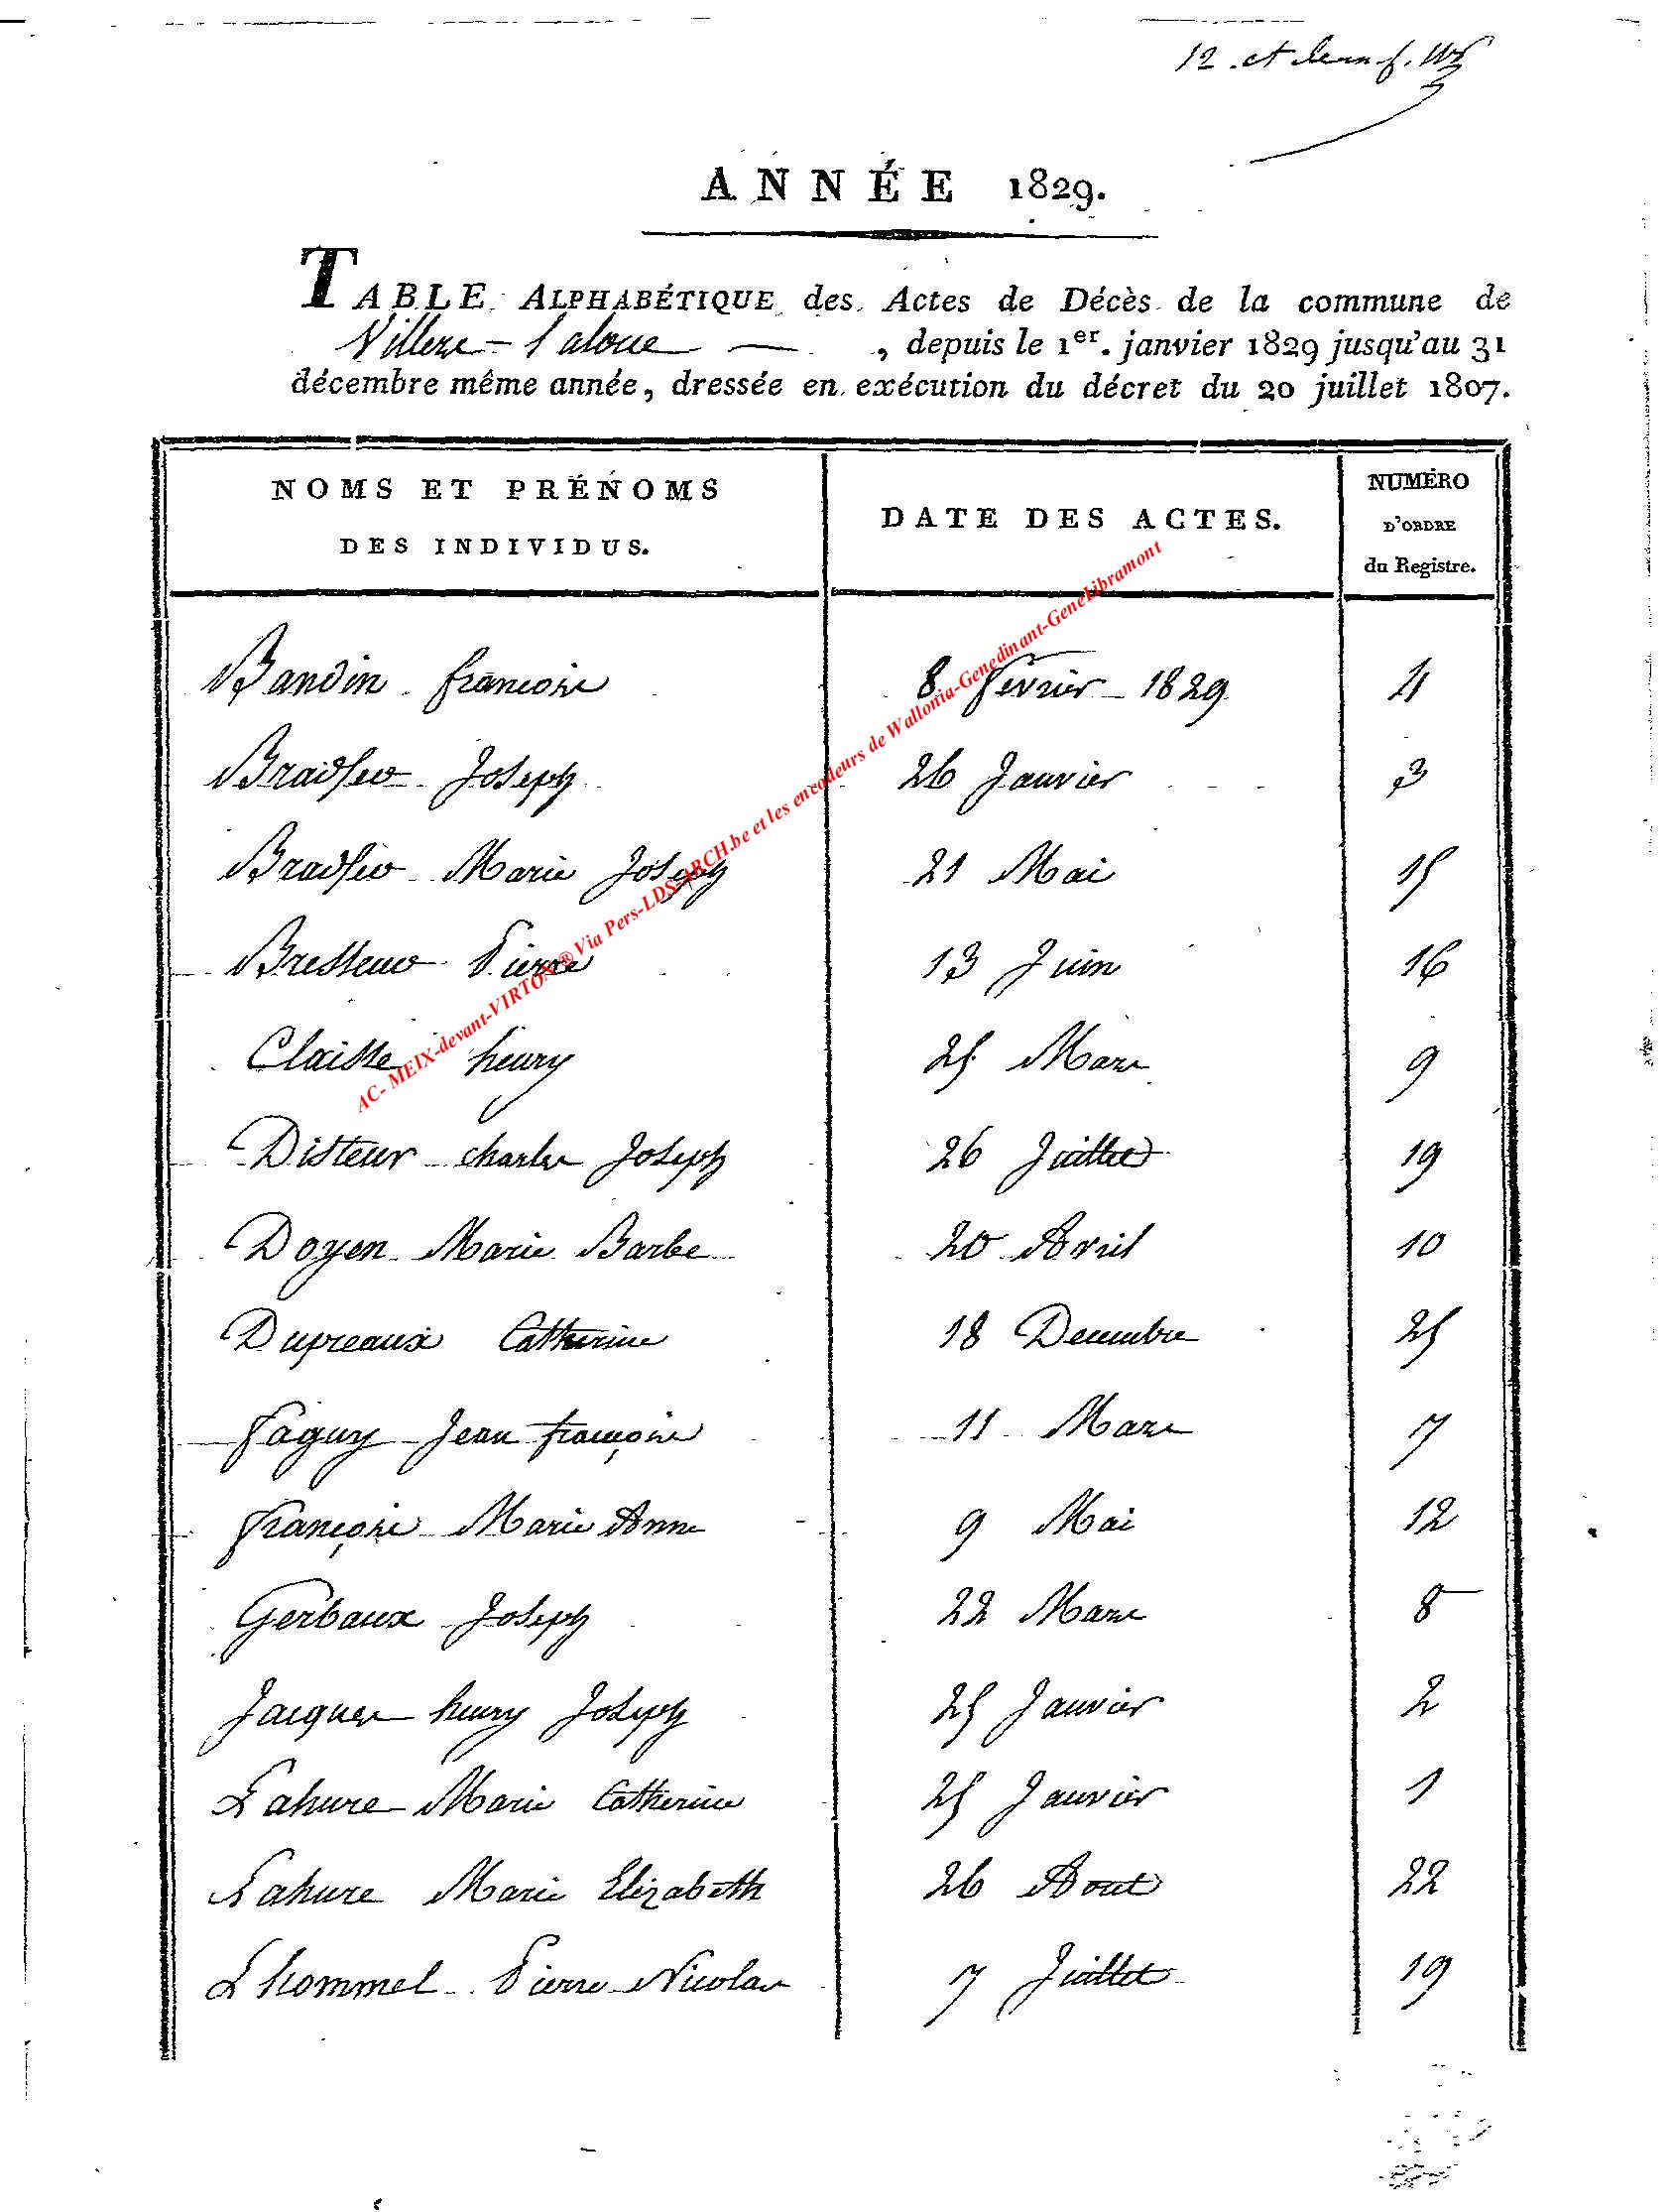 12 et
ANNÉE 1829.
TABLE ALPHABÉTIQUE des Actes de Décès de la commune de
Villers-laloue —, depuis le 1er. janvier 1829 jusqu'au 31
décembre même année, dressée en exécution du décret du 20 juillet 1807.
NOMS ET PRÉNOMS
DES INDIVIDUS.
DATE DES ACTES.
NUMÉRO
D'ORDRE
du Registre.
Bandin françoise 8 fevrier 1829 4
Joseph 26 Janvier 3
Marie Joseph 21 Mai 15
Bresseur Pierre 13 Juin 16
Claisse henry 25 Mars 9
Disteur charles Joseph 26 Juillet 19
Doyen Marie Barbe 20 Avril 10
Dupreaux Catherine 18 Decembre 25
faguy Jean françois 11 Mars 7
françois Marie Anne 9 Mai 12
Gerbaux Joseph 22 Mars 8
Jacques henry Joseph 25 Janvier 2
Lahure Marie Catherine 25 Janvier 1
Lahure Marie Elizabeth 26 Aout 22
Lhommel Pierre Nicolas 7 Juillet 19
AC- MEIX-devant-VIRTON ® Via Pers-LDS-ARCH.be et les encodeurs de Wallonia-Genedinant-GeneLibramont